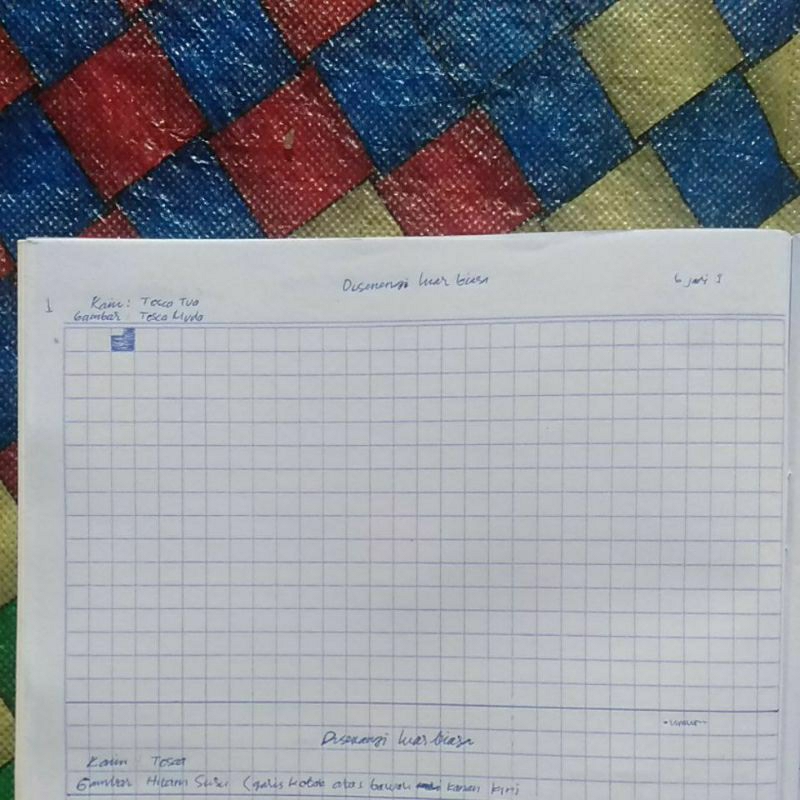 Disenangi luar biasa
6 jari I
1 Kain : Tosca Tua
Gambar : Tosca Muda
Disenangi luar biasa
Kain Tosca
Gambar Hitam Susu (garis kotak atas bawah kanan kiri